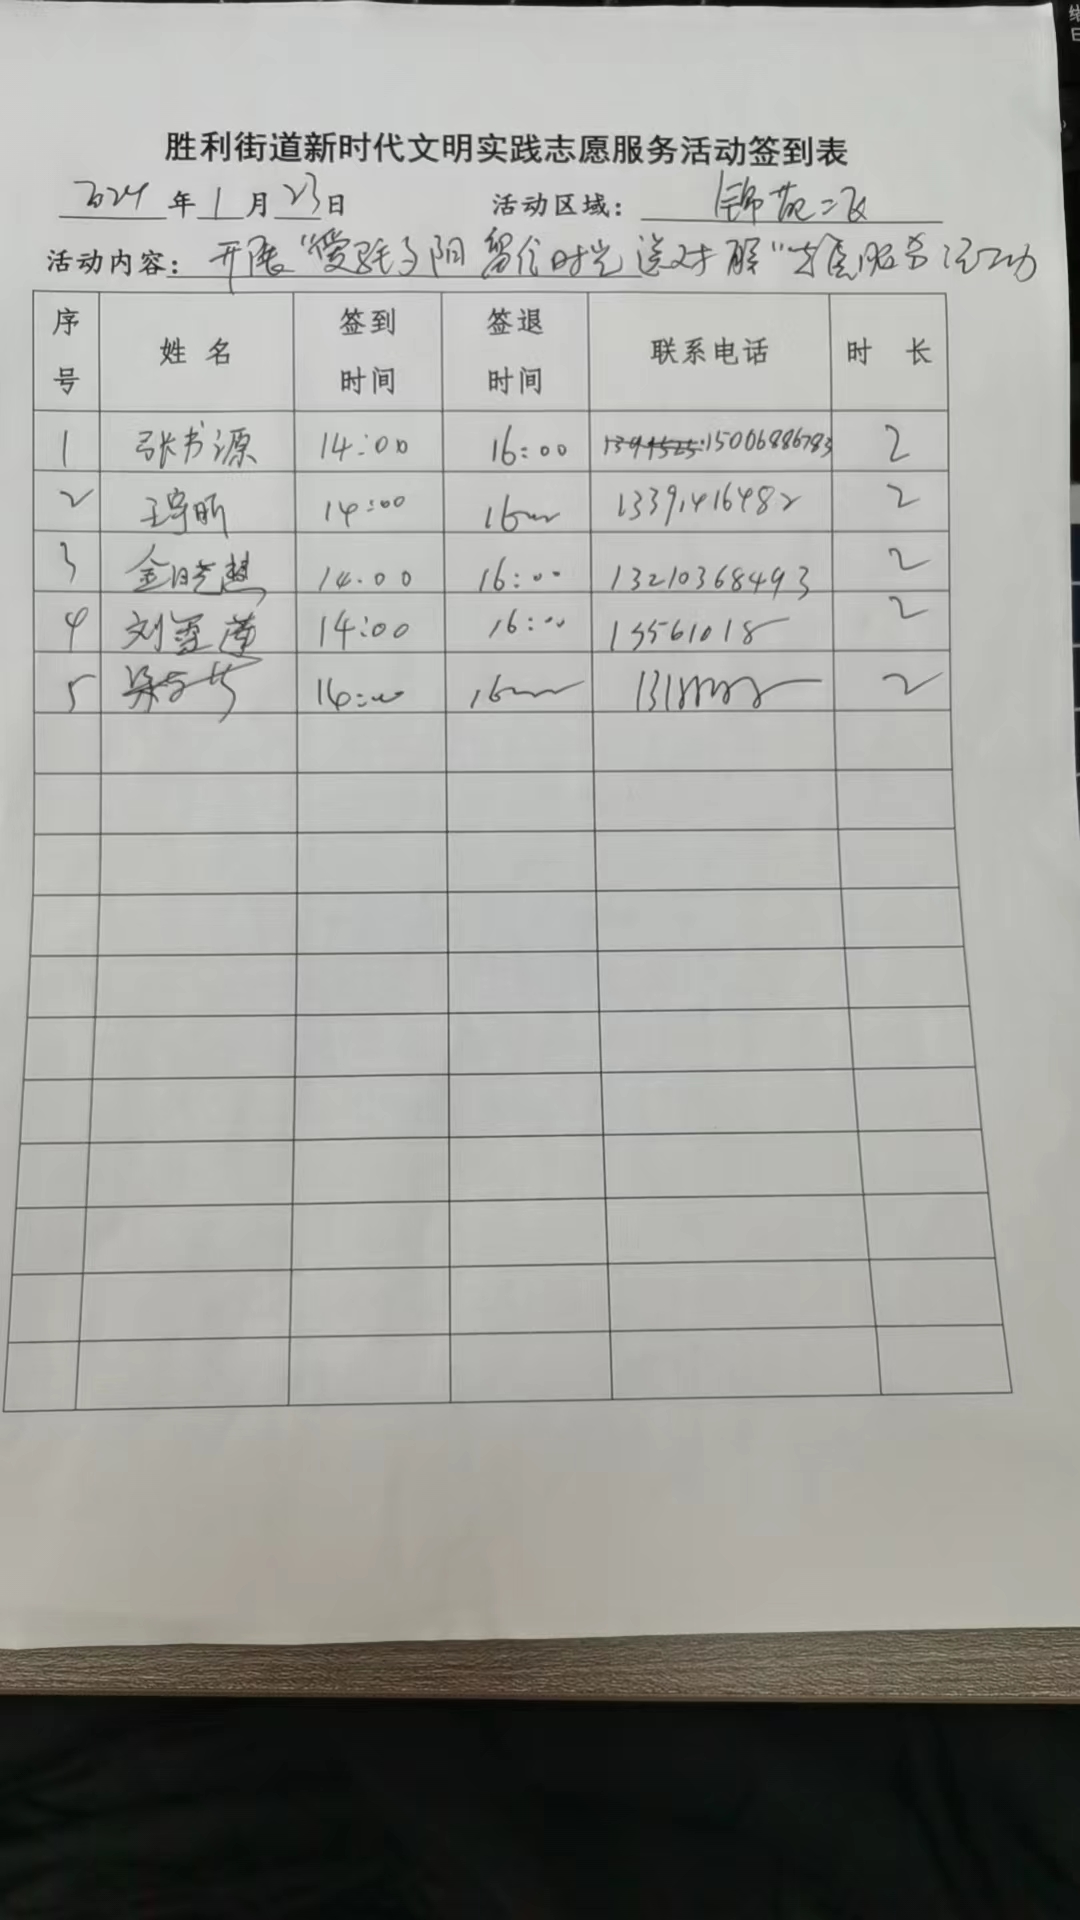 胜利街道新时代文明实践志愿服务活动签到表
2024年1月23日 活动区域：锦苑二区
活动内容：开展“爱在重阳 留住时光 送对联”志愿服务活动
序号 姓名 签到时间 签退时间 联系电话 时长
1 张书源 14:00 16:00 15006886783 2
2 王宇昕 14:00 16 13391416482 2
3 金晓慧 14:00 16:00 13210368493 2
4 刘雪莲 14:00 16:00 13561018 2
5 14:00 16 131 2